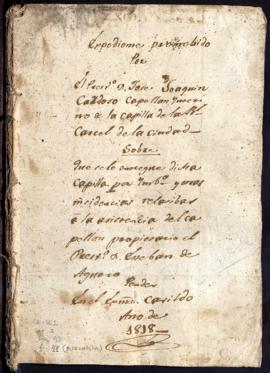 Expediente promobido
Por
El Presv.º D. Jose Joaquin
Cardoso Capellan Ynteri-
no de la capilla de la Rl.
Carcel de la ciudad
Sobre
Que se le entregue dicha
Capilla por Ymb.º y otras
incidencias relatibas
a la asistencia del ca-
pellan propietario el
Presv.º D. Esteban de
Aguero
Pende
En el Cavildo
Ano de
1818